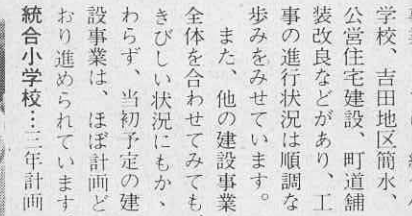 学校、吉田地区簡水、
公営住宅建設、町道舗
装改良などがあり、工
事の進行状況は順調な
歩みをみせています。
また、他の建設事業
全体を合わせてみても、
きびしい状況にもか、
わらず、当初予定の建
設事業は、ほぼ計画ど
おり進められています
統合小学校…三年計画